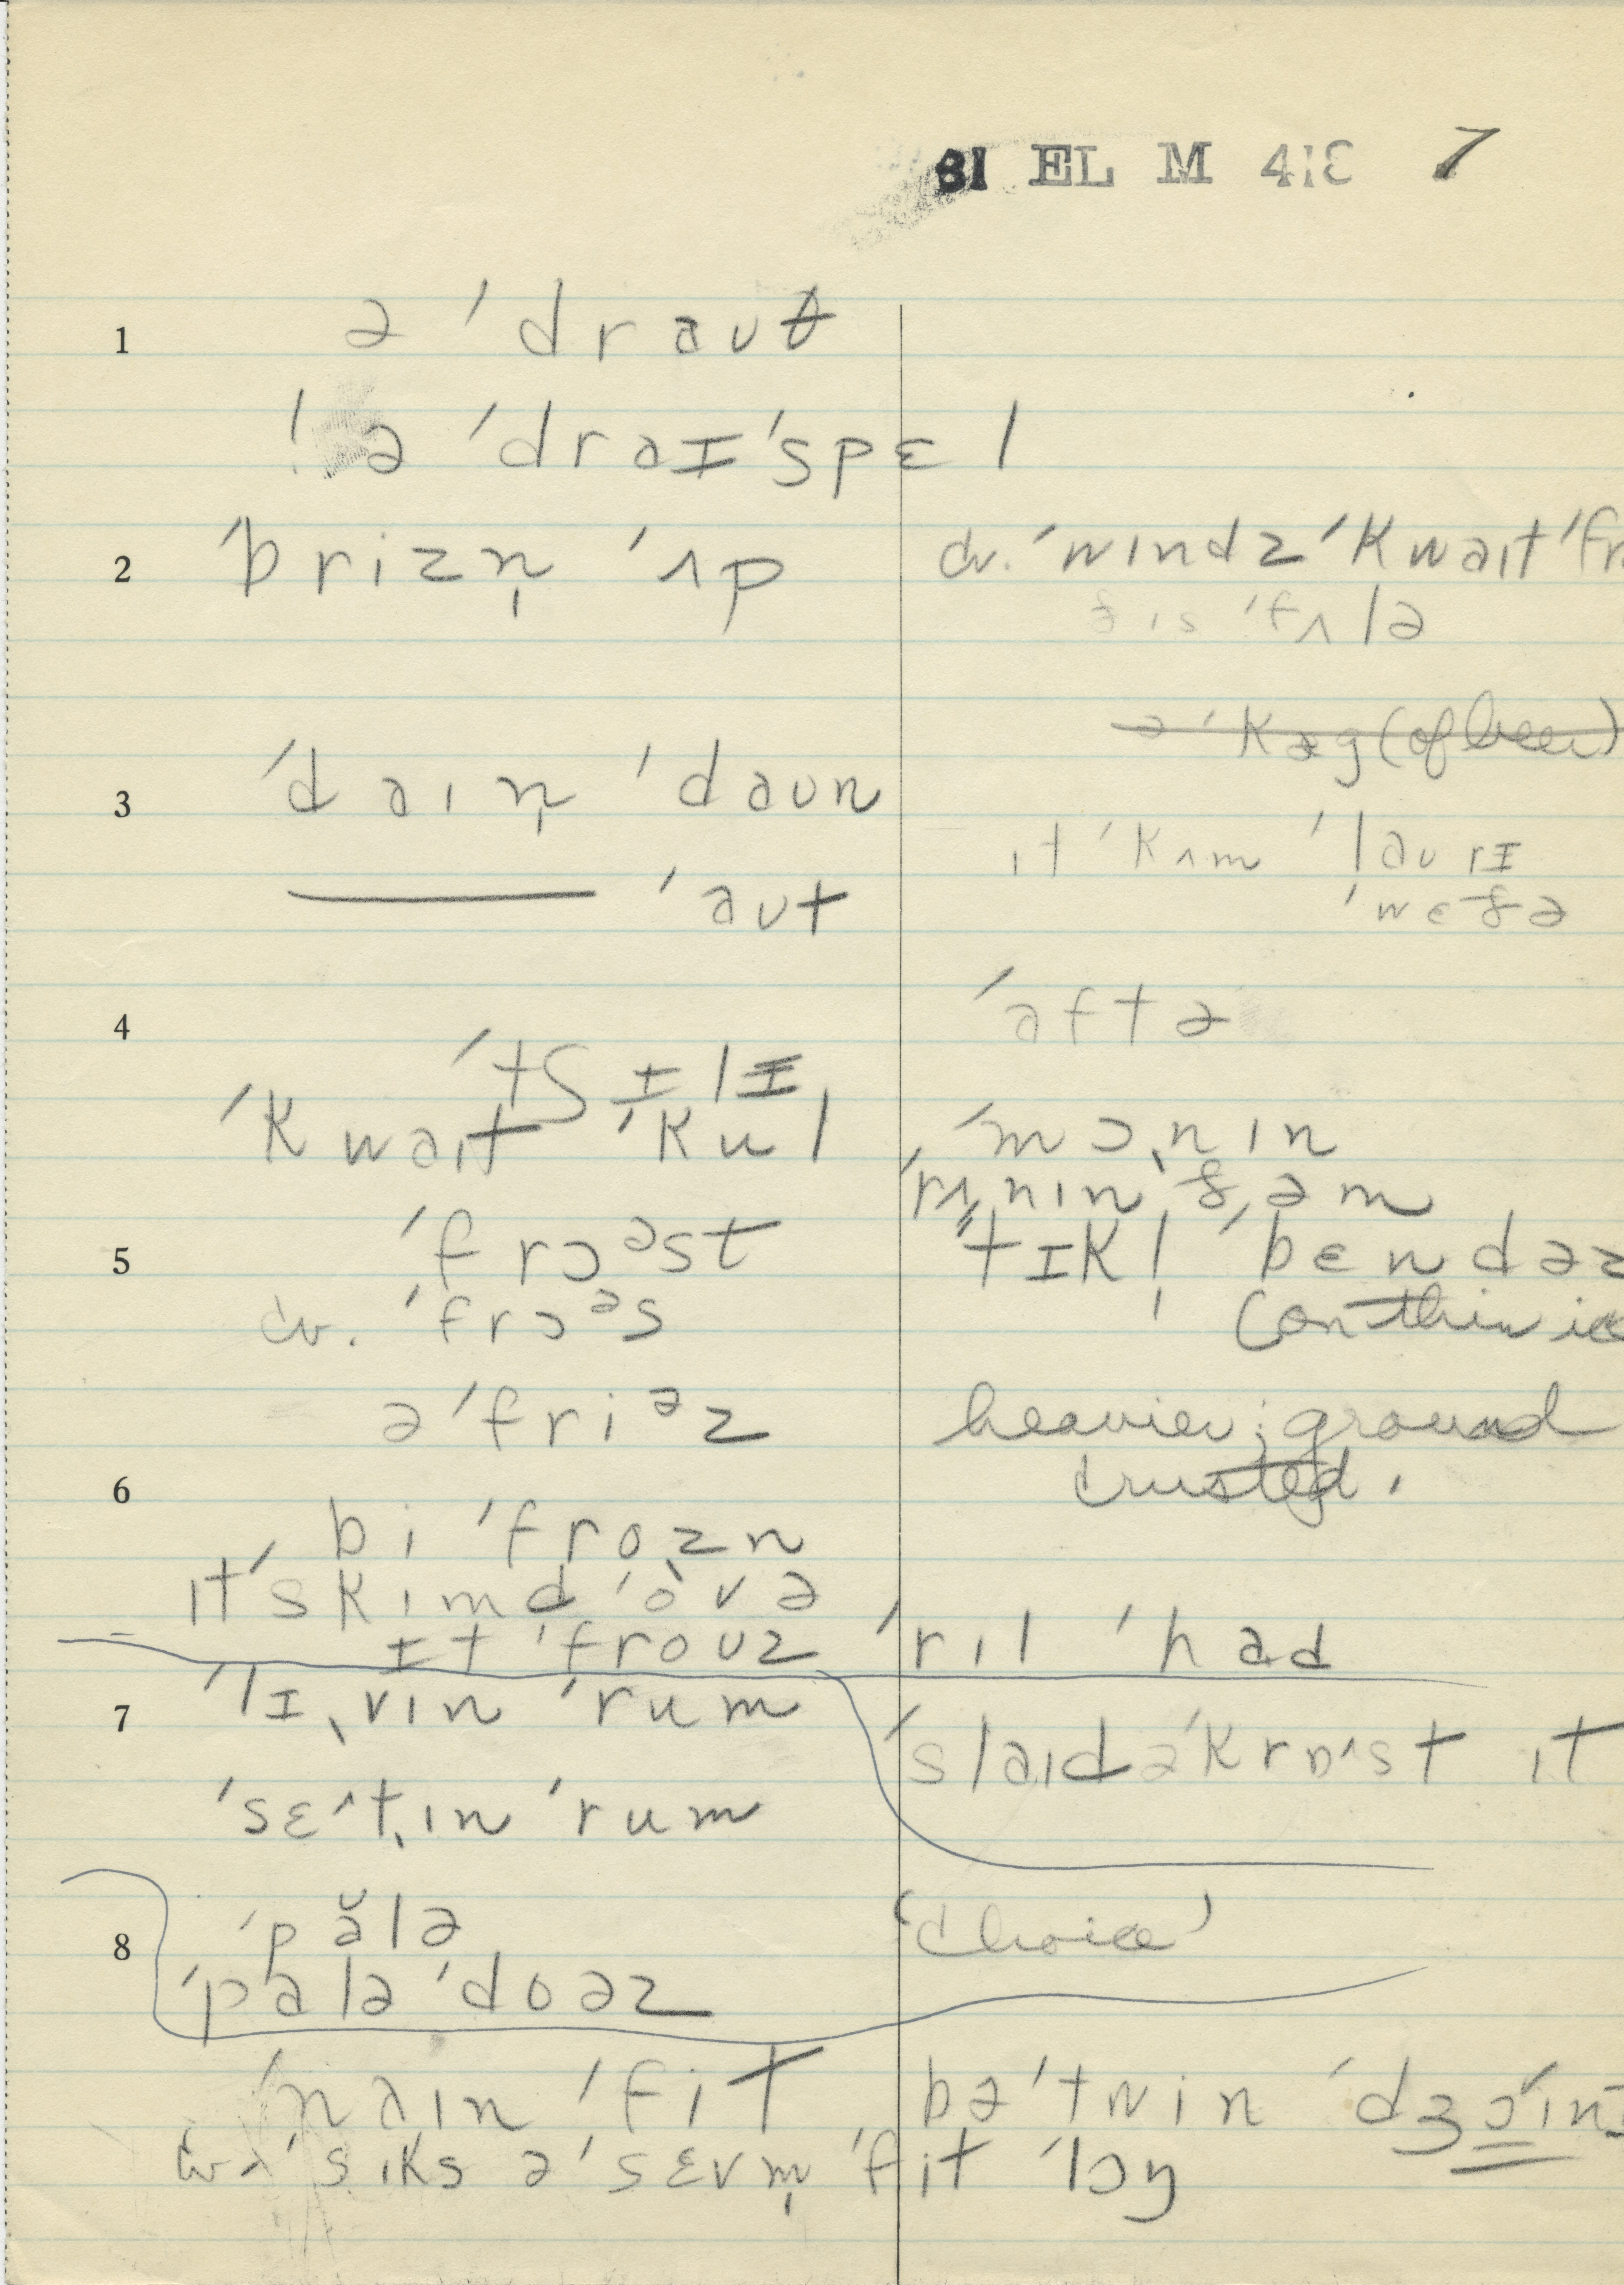 81 EL M 413 7
1 ə ˈdrauθ
! ə ˈdraɪˈspɛl
2 ˈbrizn̩ ˈʌp cv. ˈwɪndz ˈkwaɪt ˈfr
ðɪs ˈfʌlə
ə ˈkæg (of beer)
3 ˈdaɪn̩ ˈdaʊn
ɪt ˈkʌm ˈlaʊrɪ
——— ˈaʊt ˈwɛðə
4 ˈaftə
ˈtʃɪlɪ
ˈkwaɪt ˈkul ˈmɔˌnɪn
ˈrʌˌnɪn ðəm
5 ˈfrɔᵊst ˈtɪkl̩ ˈbɛndəz
cv. ˈfrɔᵊs (on thin ice
ə ˈfriᵊz heavier; ground
crusted.
6 bi ˈfrozn
ɪtˈskɪmd ˈovə
ɪt ˈfroʊz ˈrɪl ˈhad
7 ˈlɪˌvɪn ˈrum
ˈslaɪd əˈkrɒˆst ɪt
ˈsɛˆtˌɪn ˈrum
8 ˈpălə (choice)
ˈpalə ˈdoəz
ˈnaɪn ˈfit bəˈtwin ˈdʒɔɪn
cv. ˈsɪks ə ˈsɛvm̩ ˈfit ˈlɔŋ